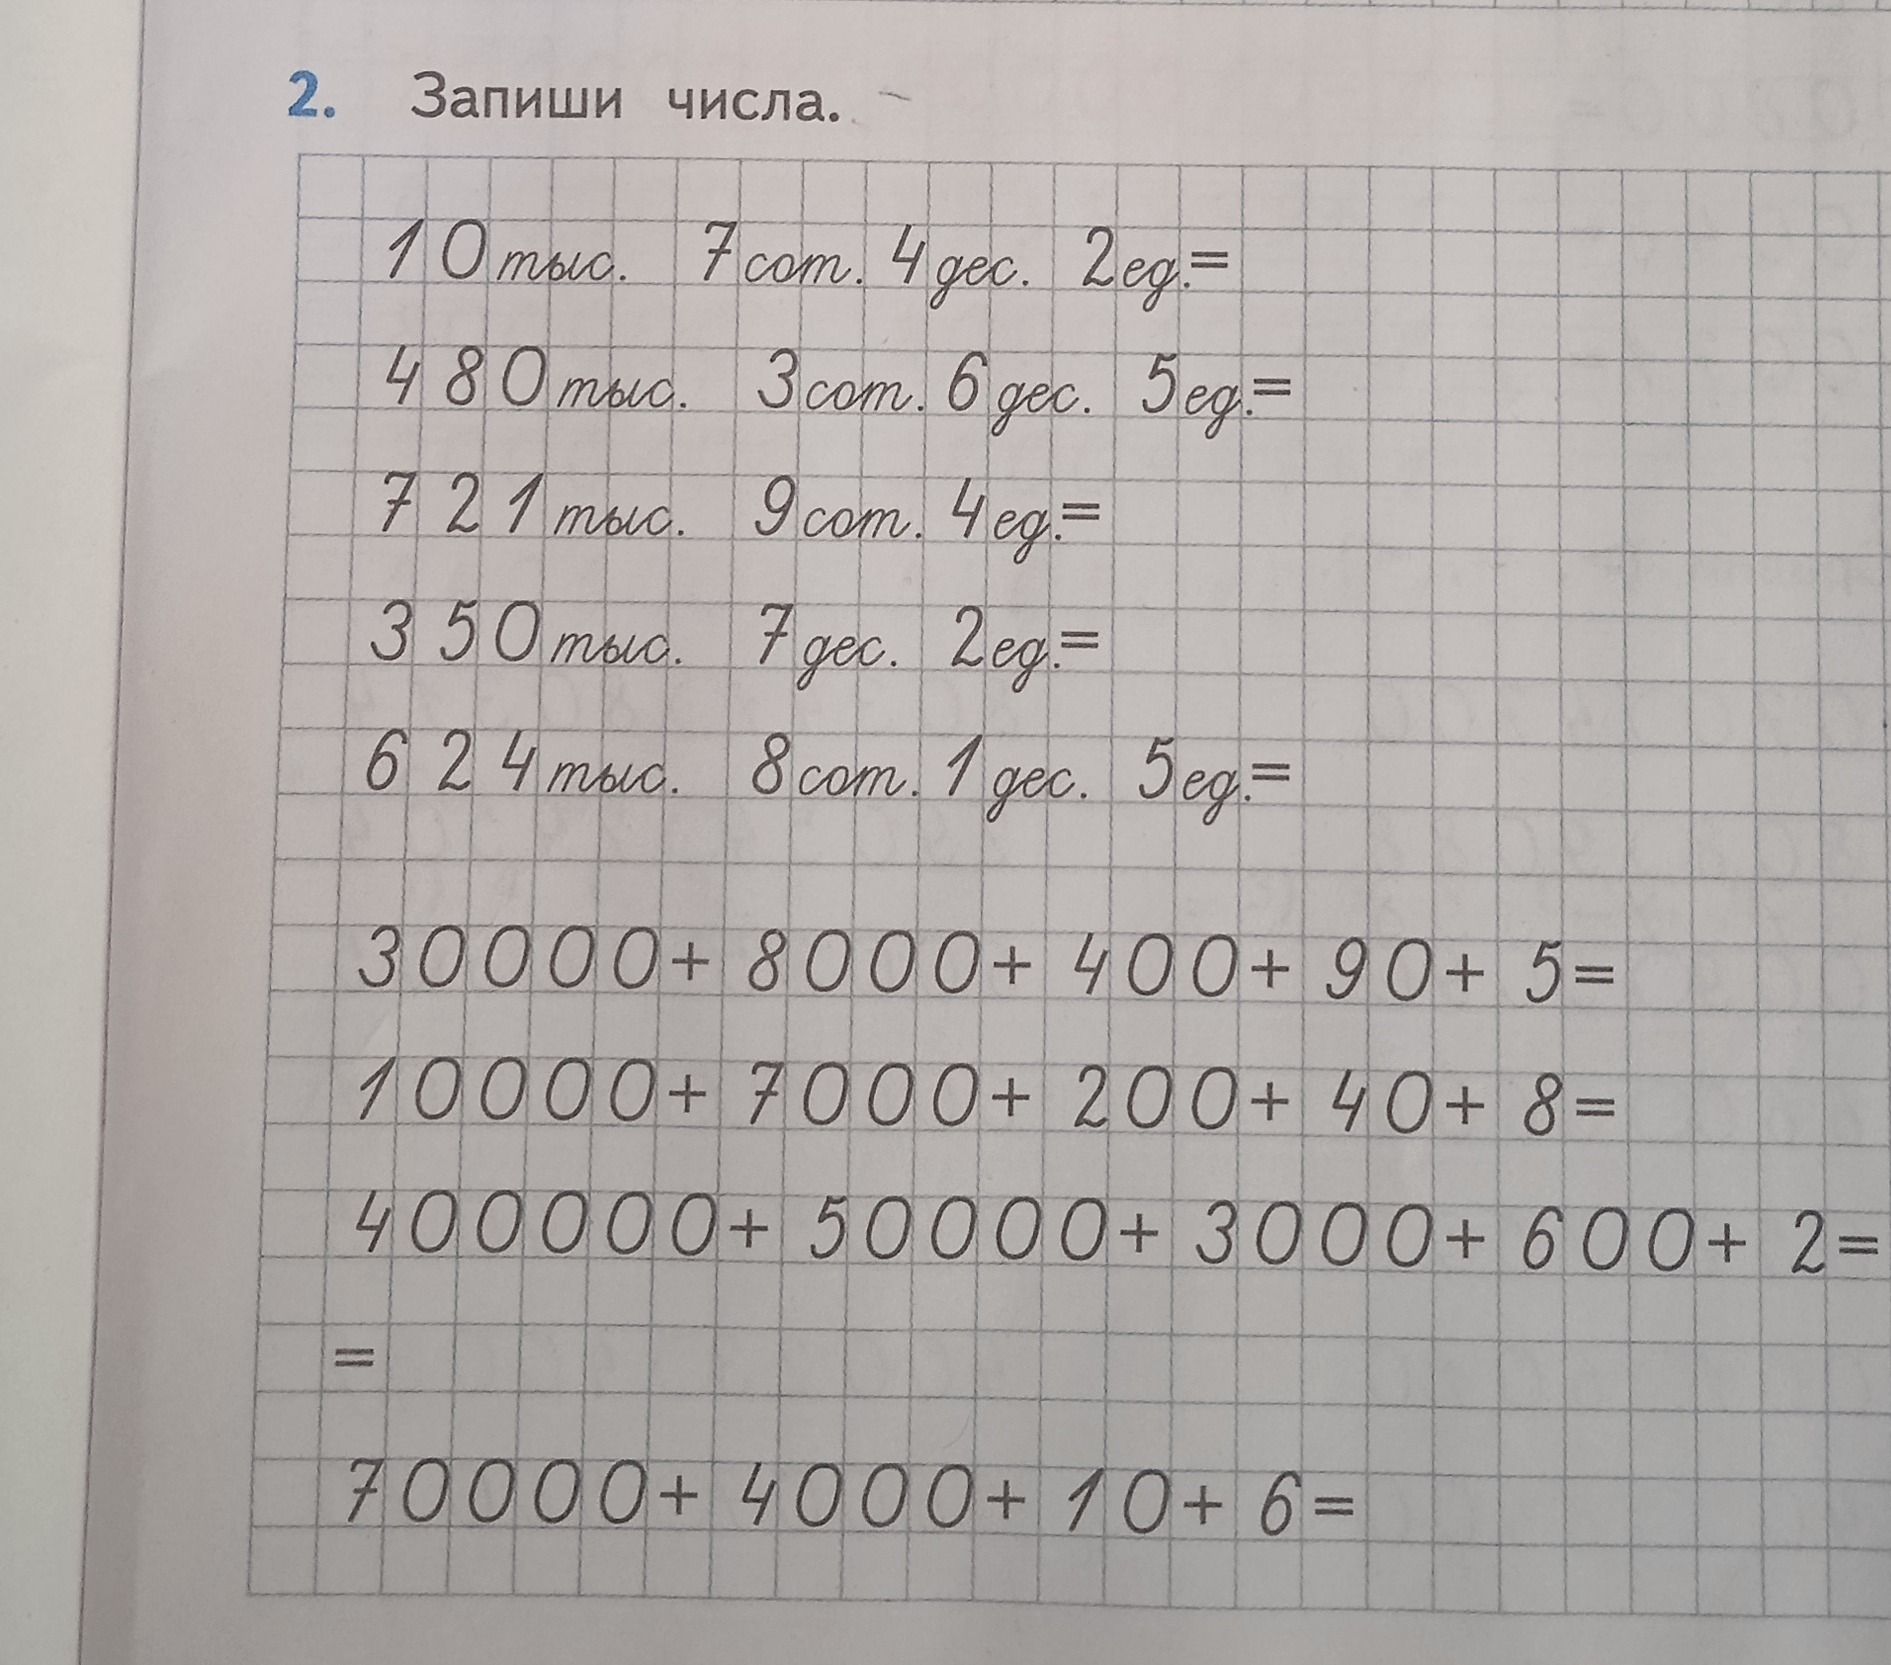 2. Запиши числа.
10 тыс. 7 сот. 4 дес. 2 ед.=
480 тыс. 3 сот. 6 дес. 5 ед.=
721 тыс. 9 сот. 4 ед.=
350 тыс. 7 дес. 2 ед.=
624 тыс. 8 сот. 1 дес. 5 ед.=
30000+ 8000+ 400+ 90+ 5=
10000+ 7000+ 200+ 40+ 8=
400000+ 50000+ 3000+ 600+ 2=
=
70000+ 4000+ 10+ 6=